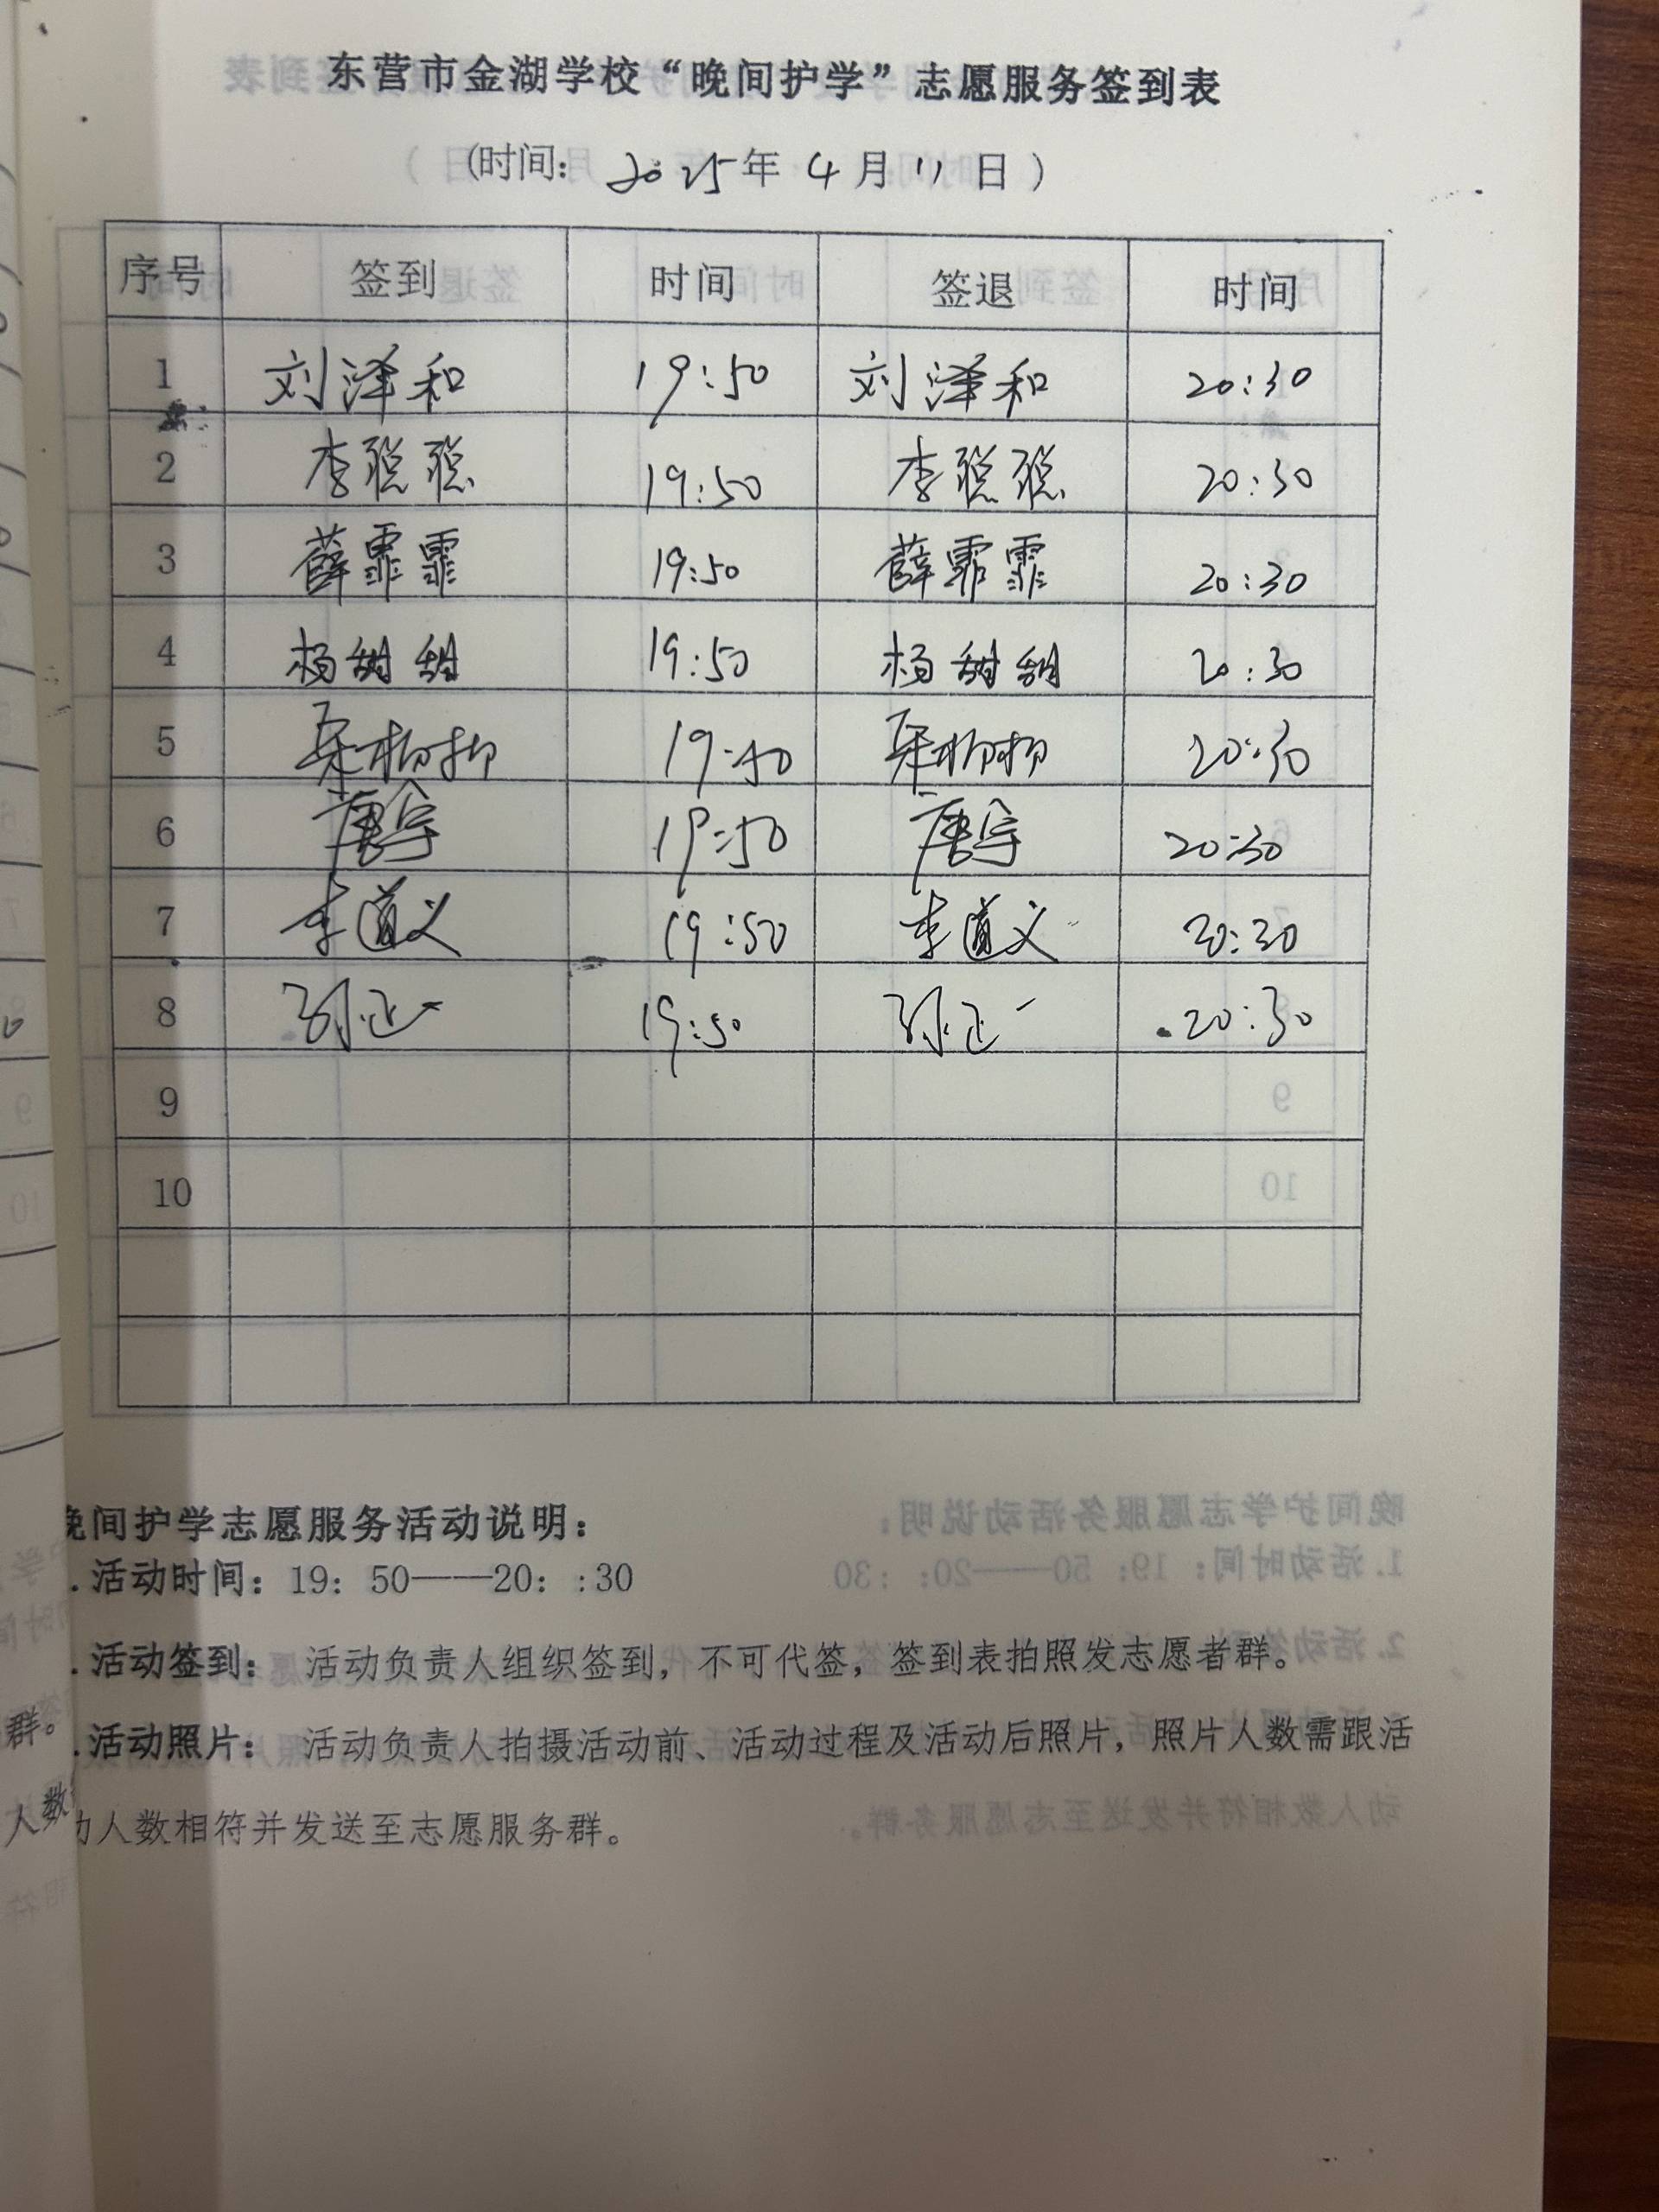 东营市金湖学校“晚间护学”志愿服务签到表
(时间: 2025年 4 月 11 日 )
序号 签到 时间 签退 时间
1 刘泽和 19:50 刘泽和 20:30
2 李聪聪 19:50 李聪聪 20:30
3 薛霏霏 19:50 薛霏霏 20:30
4 杨甜甜 19:50 杨甜甜 20:30
5 20:30
6 19:50 20:30
7 李道义 19:50 李道义 20:30
8 19:50 20:30
9
10
晚间护学志愿服务活动说明:
.活动时间: 19: 50——20: :30
.活动签到: 活动负责人组织签到, 不可代签, 签到表拍照发志愿者群。
.活动照片: 活动负责人拍摄活动前、活动过程及活动后照片, 照片人数需跟活
动人数相符并发送至志愿服务群。